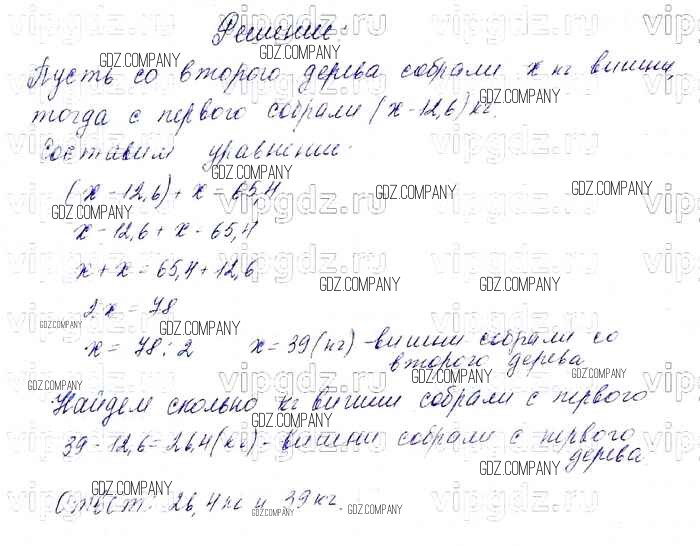 Решение:
Пусть со второго дерева собрали x кг вишни,
тогда с первого собрали (x-12,6) кг.
Составим уравнение:
(x-12,6)+x=65,4
x-12,6+x=65,4
x+x=65,4+12,6
2x=78
x=78:2 x=39(кг)-вишни собрали со
второго дерева
Найдем сколько кг вишни собрали с первого
39-12,6=26,4(кг)-вишни собрали с первого
дерева
Ответ: 26,4 кг и 39 кг.
vipgdz.ru
GDZ.COMPANY